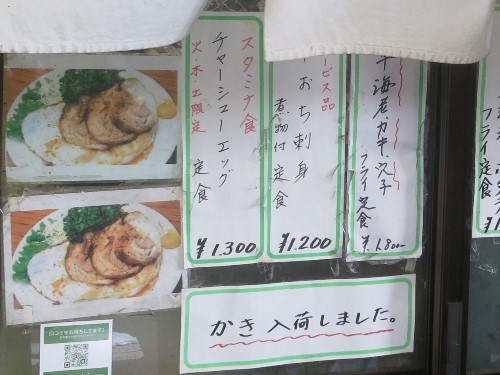 スタミナ食
チャーシューエッグ
火木土限定
定食
¥1,300
ービス品
おち刺身
煮物付定食
¥1,200
海老カキ穴子
フライ定食
¥1,800
かき入荷しました。
口コミをお待ちしてます!